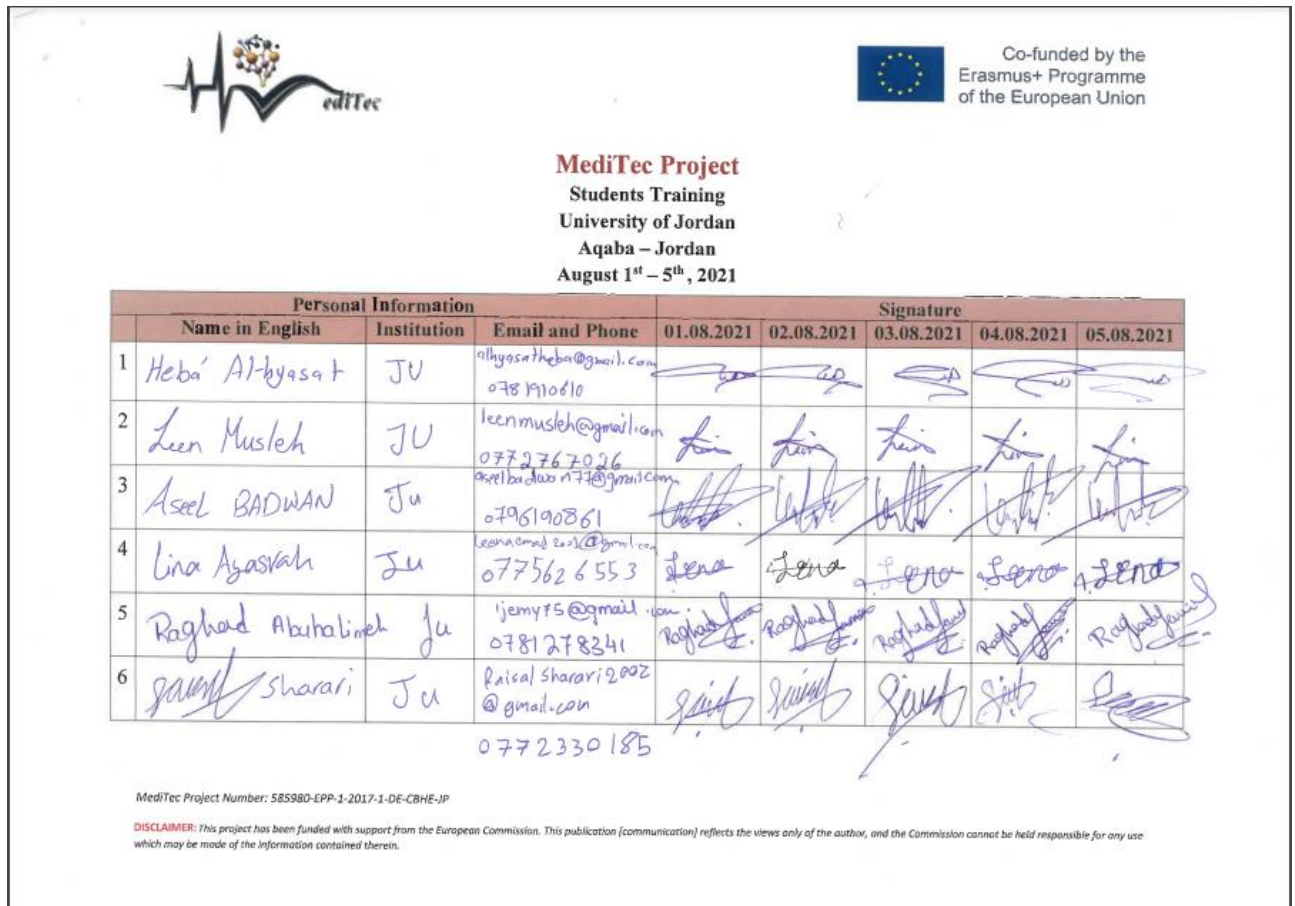 ediTec
Co-funded by the
Erasmus+ Programme
of the European Union
MediTec Project
Students Training
University of Jordan
Aqaba – Jordan
August 1st – 5th, 2021
Personal Information Signature
Name in English Institution Email and Phone 01.08.2021 02.08.2021 03.08.2021 04.08.2021 05.08.2021
1 Heba Al-hyasat JU alhyasatheba@gmail.com
0781910610
2 Leen Musleh JU leenmusleh@gmail.com
0772767026
3 Aseel BADWAN Ju aseelbadwan77@gmail.com
0796190861
4 Lina Ju
0775626553 Lena Lena Lena Lena Lena
5 Raghad Abuhalimeh Ju jemy75@gmail.com
0781278341 Raghad Raghad Raghad Raghad Raghad
6 Sharari Ju
@gmail.com
0772330185
MediTec Project Number: 585980-EPP-1-2017-1-DE-CBHE-JP
DISCLAIMER: This project has been funded with support from the European Commission. This publication [communication] reflects the views only of the author, and the Commission cannot be held responsible for any use
which may be made of the information contained therein.